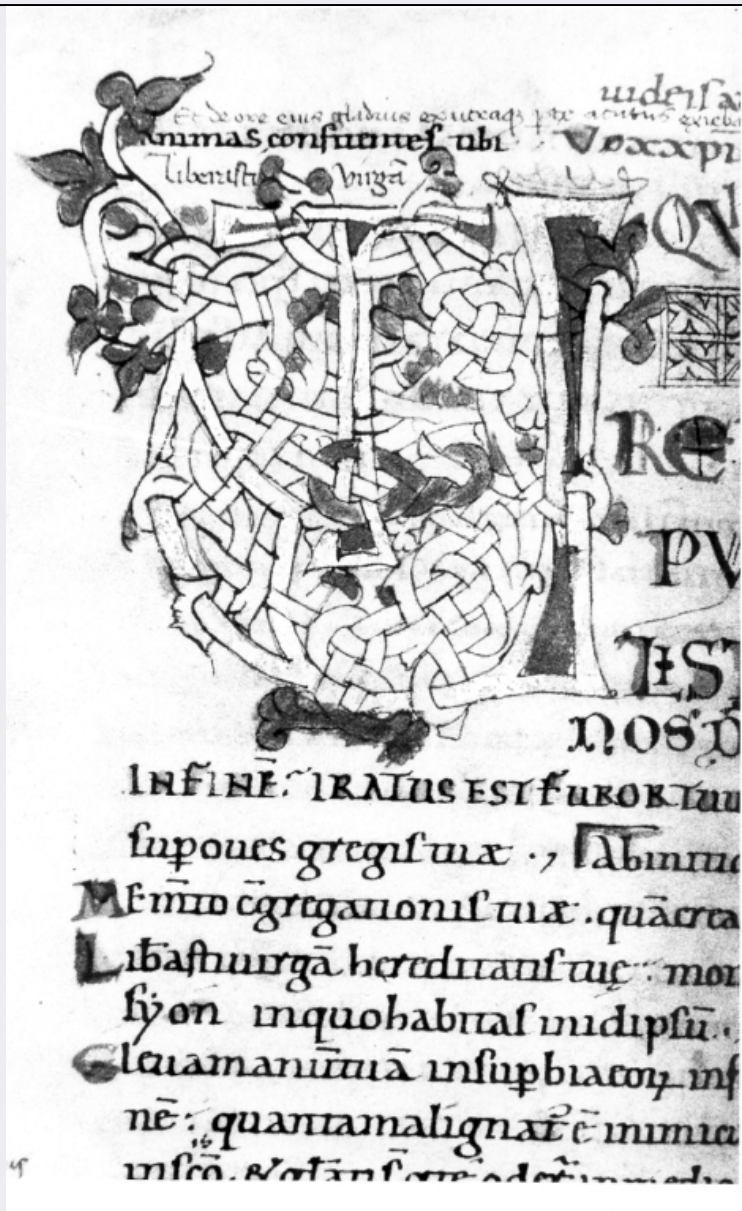 Et de ore eius gladius ex utraq; pte acutus exieba
Animas confitentes tibi Vox xpi
Liberasti virgā
QV
RE
PV
LIST
NOS D
INFINĒ: IRATUS EST FUROR TUU
sup oues gregis tuæ ., Ab
Mēnto c̄gregationis tuæ . quā crea
Libasti uirgā hereditatis tuę : mon
syon in quo habitas in id ipsū .
Eleua manꝰ tuā in supbia eoꝝ in f
nē : quanta malignatꝰ ē inimic
in scō . &